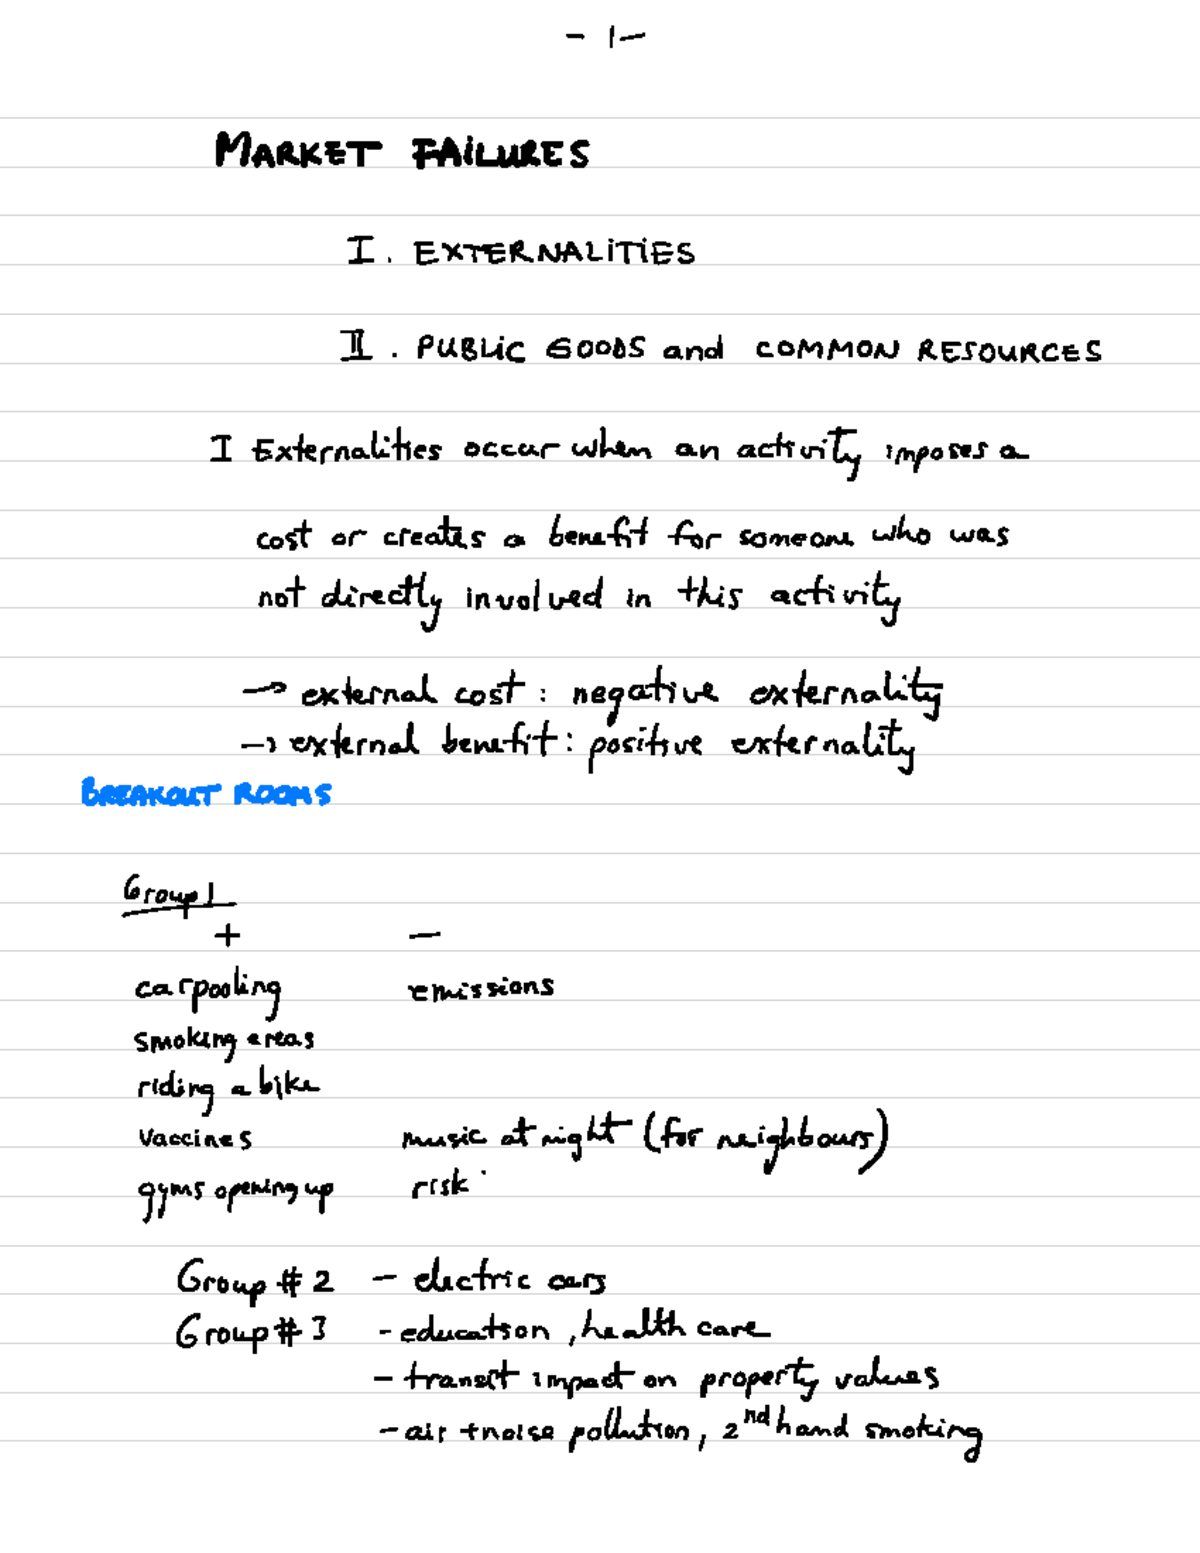 - 1 -
MARKET FAILURES
I. EXTERNALITIES
II. PUBLIC GOODS and COMMON RESOURCES
I Externalities occur when an activity imposes a
cost or creates a benefit for someone who was
not directly involved in this activity
→ external cost: negative externality
→ external benefit: positive externality
BREAKOUT ROOMS
Group 1
+ -
carpooling emissions
smoking areas
riding a bike
vaccines music at night (for neighbours)
gyms opening up risk
Group # 2 - electric cars
Group # 3 - education, health care
- transit impact on property values
- air + noise pollution, 2nd hand smoking